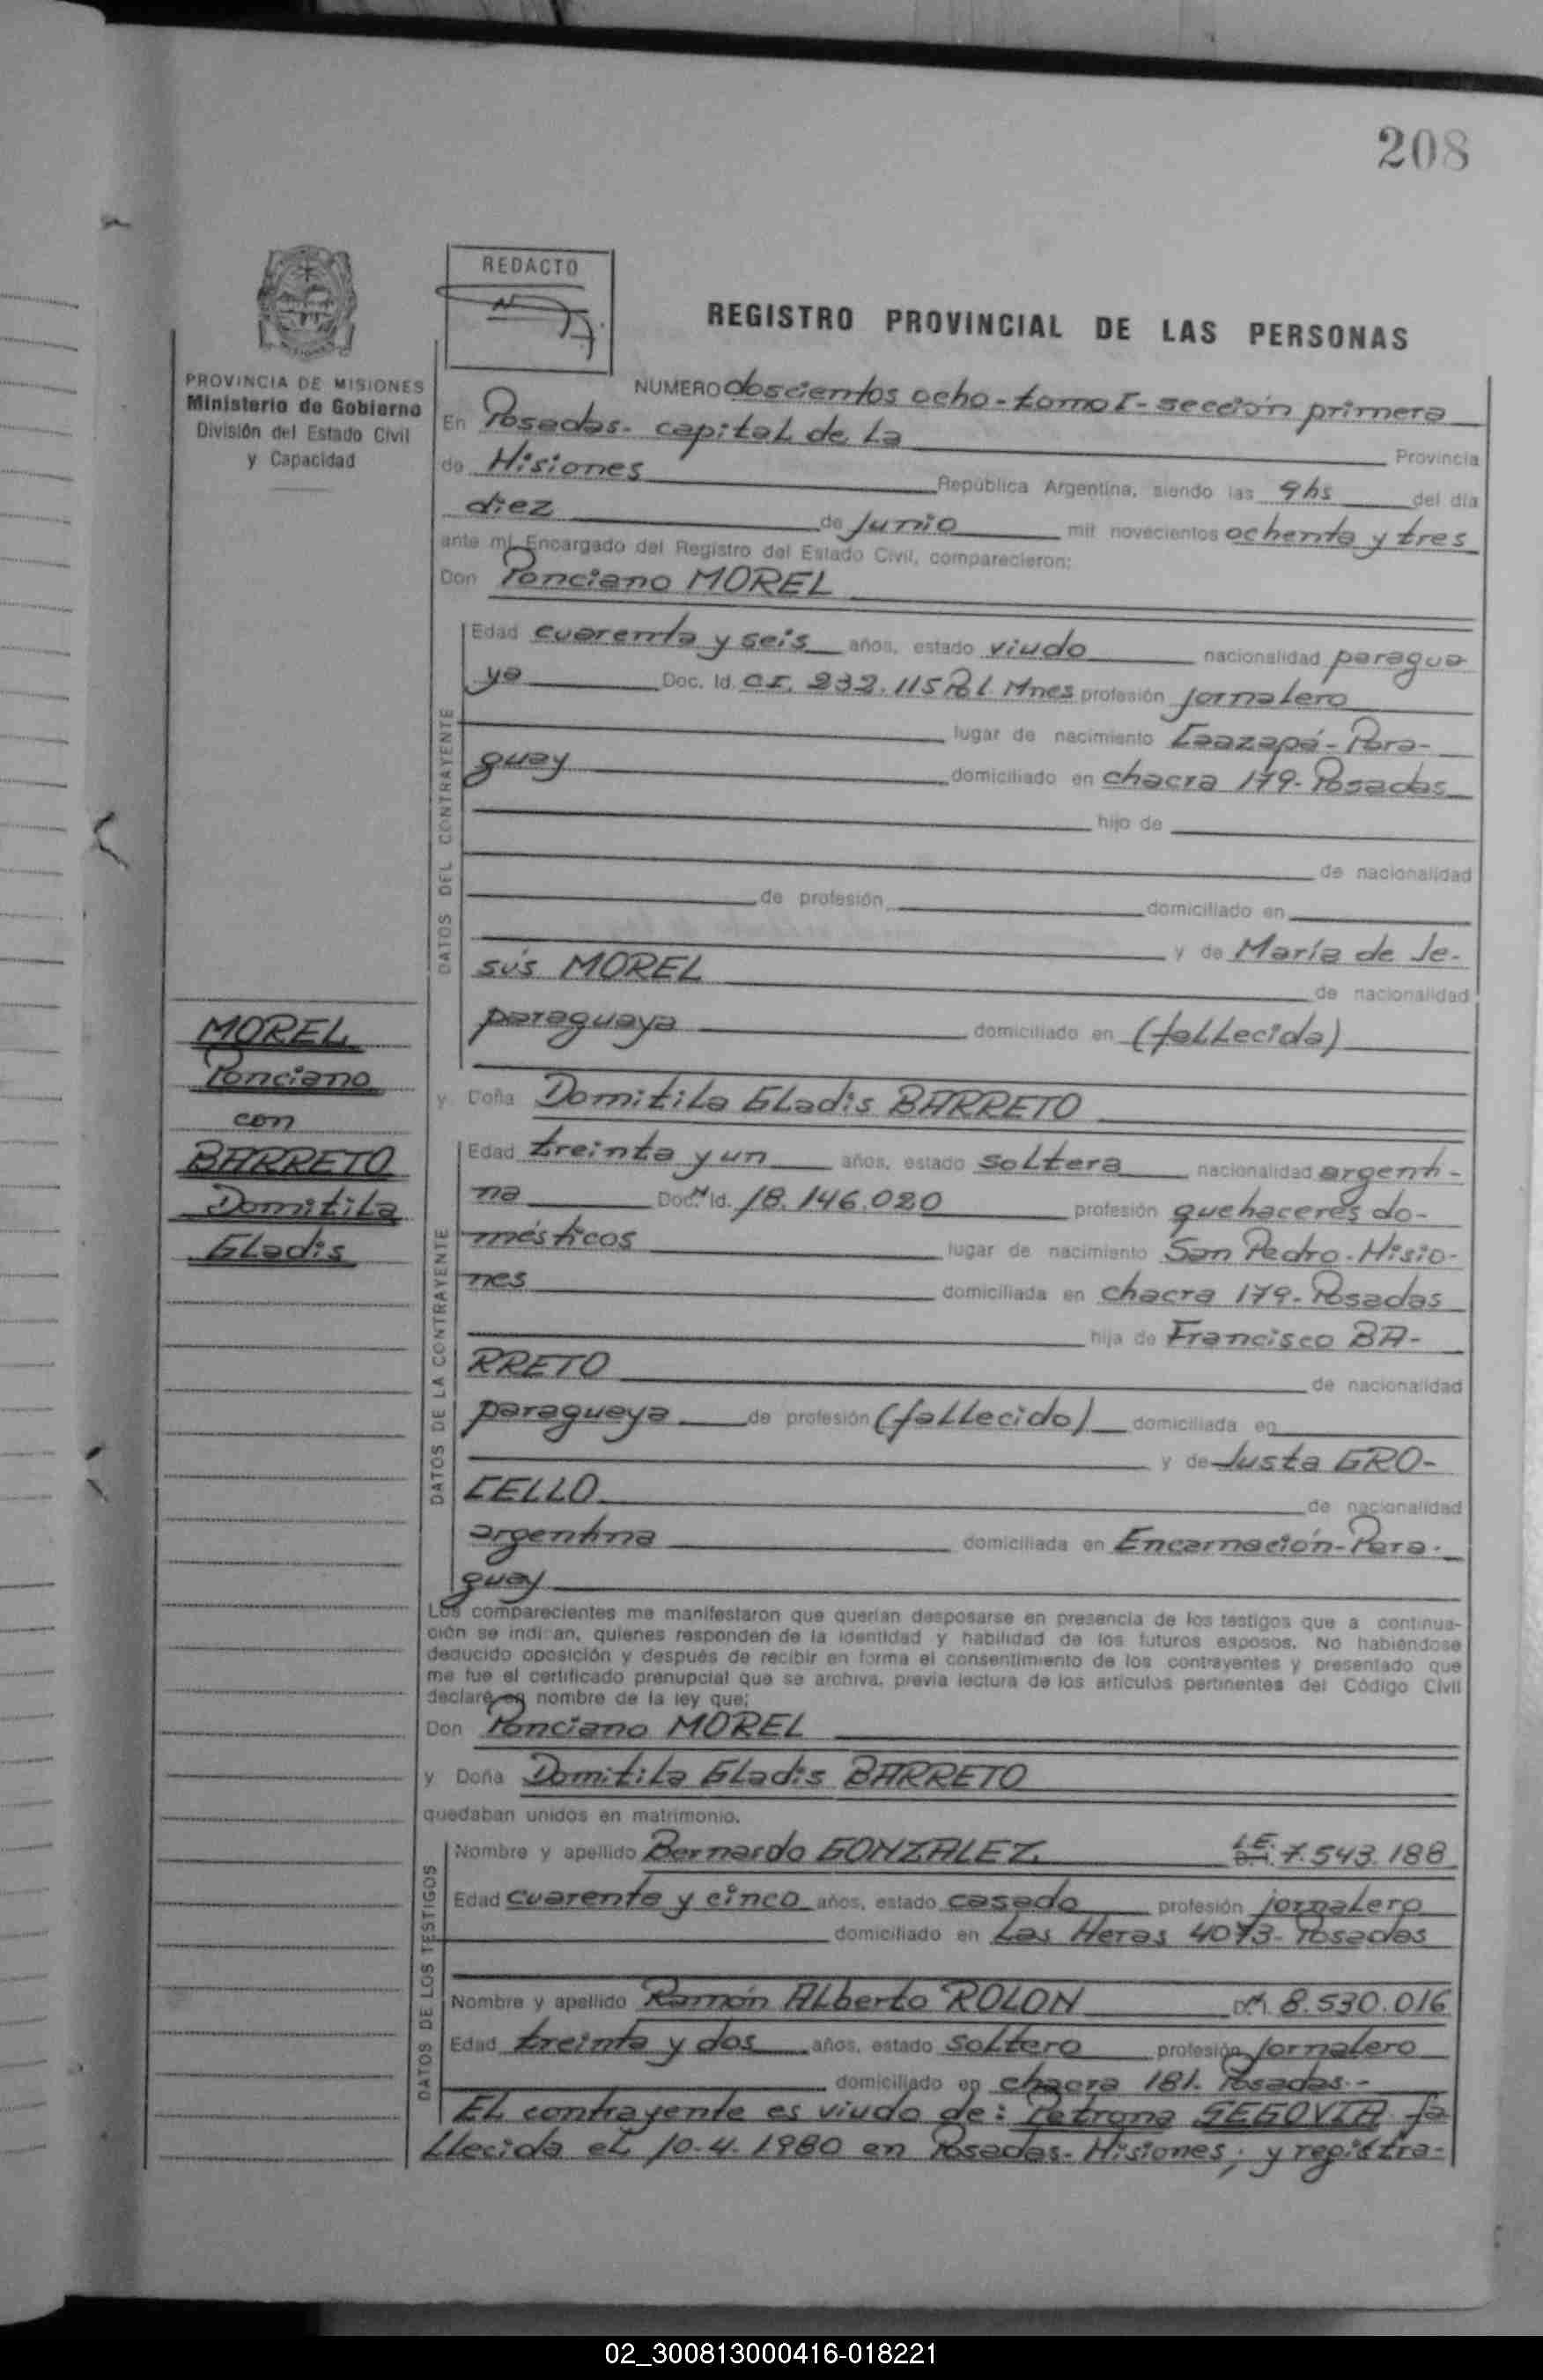 208
REDACTO
REGISTRO PROVINCIAL DE LAS PERSONAS
PROVINCIA DE MISIONES
Ministerio de Gobierno
División del Estado Civil
y Capacidad
NUMERO doscientos ocho - tomo I - sección primera
En Posadas. capital de la Provincia
de Misiones República Argentina, siendo las 9hs del día
diez de Junio mil novecientos ochenta y tres
ante mí, Encargado del Registro del Estado Civil, comparecieron:
Don Ponciano MOREL
DATOS DEL CONTRAYENTE
Edad cuarenta y seis años, estado viudo nacionalidad paragua
ya Doc. Id. C.I. 232.115 Pol. Mnes profesión jornalero
lugar de nacimiento Caazapá - Para-
guay domiciliado en chacra 179 - Posadas
hijo de
de nacionalidad
de profesión domiciliado en
y de María de Je-
sús MOREL de nacionalidad
paraguaya domiciliado en (fallecida)
MOREL
Ponciano
con
BARRETO
Domitila
Gladis
y Doña Domitila Gladis BARRETO
DATOS DE LA CONTRAYENTE
Edad treinta y un años, estado soltera nacionalidad argenti-
na Doc. Id. 18.146.020 profesión quehaceres do-
mésticos lugar de nacimiento San Pedro - Misio-
nes domiciliada en chacra 179 - Posadas
hija de Francisco BA-
RRETO de nacionalidad
paragueya de profesión (fallecido) domiciliada en
y de Justa GRO-
CELLO de nacionalidad
argentina domiciliada en Encarnación - Para-
guay
Los comparecientes me manifestaron que querían desposarse en presencia de los testigos que a continua-
ción se indi an, quienes responden de la identidad y habilidad de los futuros esposos. No habiéndose
deducido oposición y después de recibir en forma el consentimiento de los contrayentes y presentado que
me fue el certificado prenupcial que se archiva, previa lectura de los artículos pertinentes del Código Civil
declaré en nombre de la ley que:
Don Ponciano MOREL
y Doña Domitila Gladis BARRETO
quedaban unidos en matrimonio.
DATOS DE LOS TESTIGOS
Nombre y apellido Bernardo GONZALEZ L.E. 7.543.188
Edad cuarenta y cinco años, estado casado profesión jornalero
domiciliado en Las Heras 4073 - Posadas
Nombre y apellido Ramón Alberto ROLON 8.530.016
Edad treinta y dos años, estado soltero profesión jornalero
domiciliado en chacra 181. Posadas.-
El contrayente es viudo de: Petrona SEGOVIA fa
llecida el 10-4-1980 en Posadas - Misiones; y registra-
02_300813000416-018221